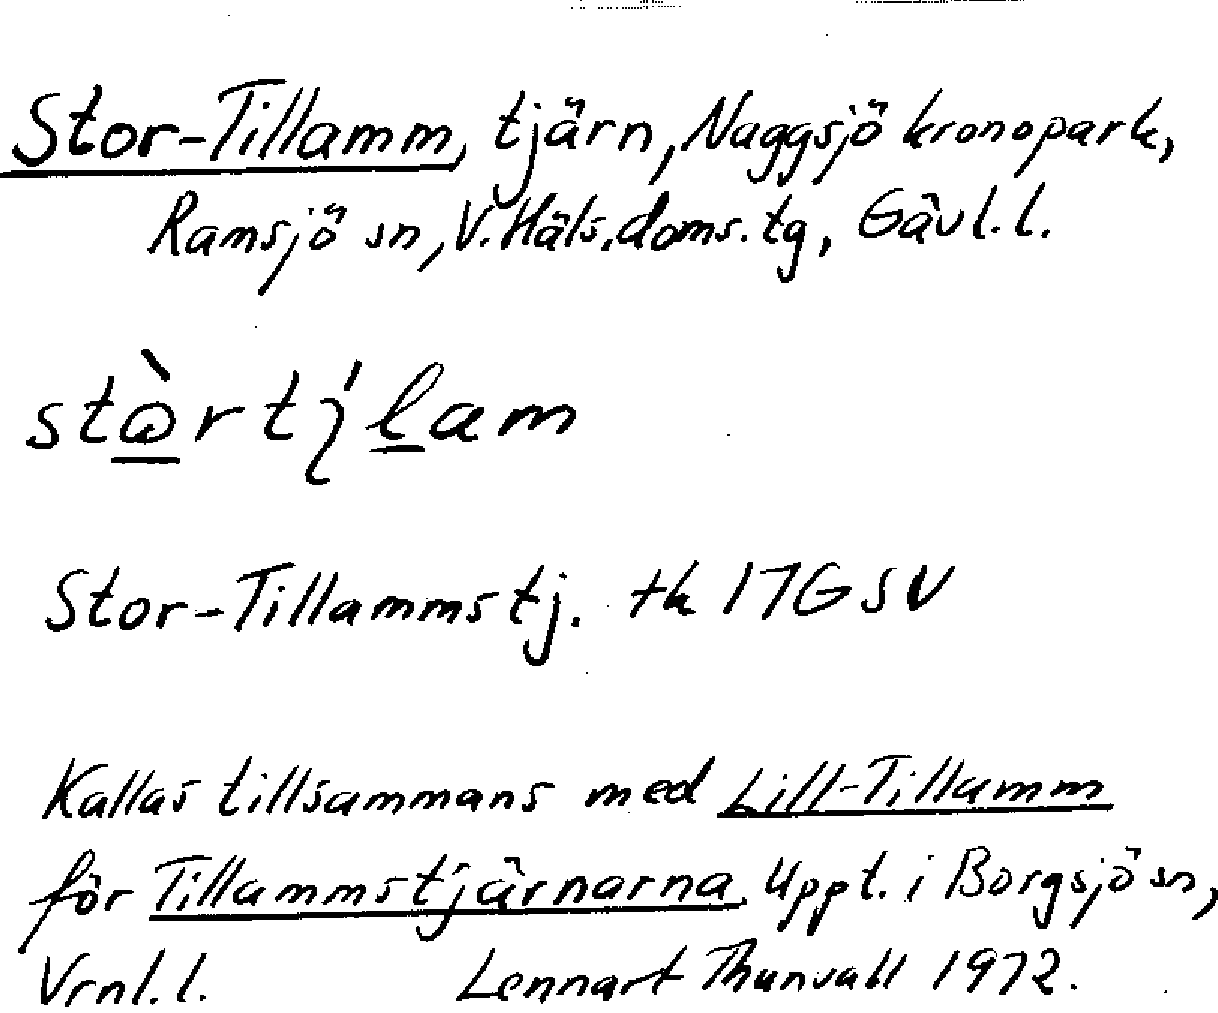 Stor-Tillamm, tjärn, Naggsjö kronopark,
Ramsjö sn, V. Häls. doms. tg, Gävl. l.
Stor-Tillammstj. tk 17G SV
Kallas tillsammans med Lill-Tillamm
för Tillammstjärnarna. Uppt. i Borgsjö sn,
Vrnl. l. Lennart Thunvall 1972.